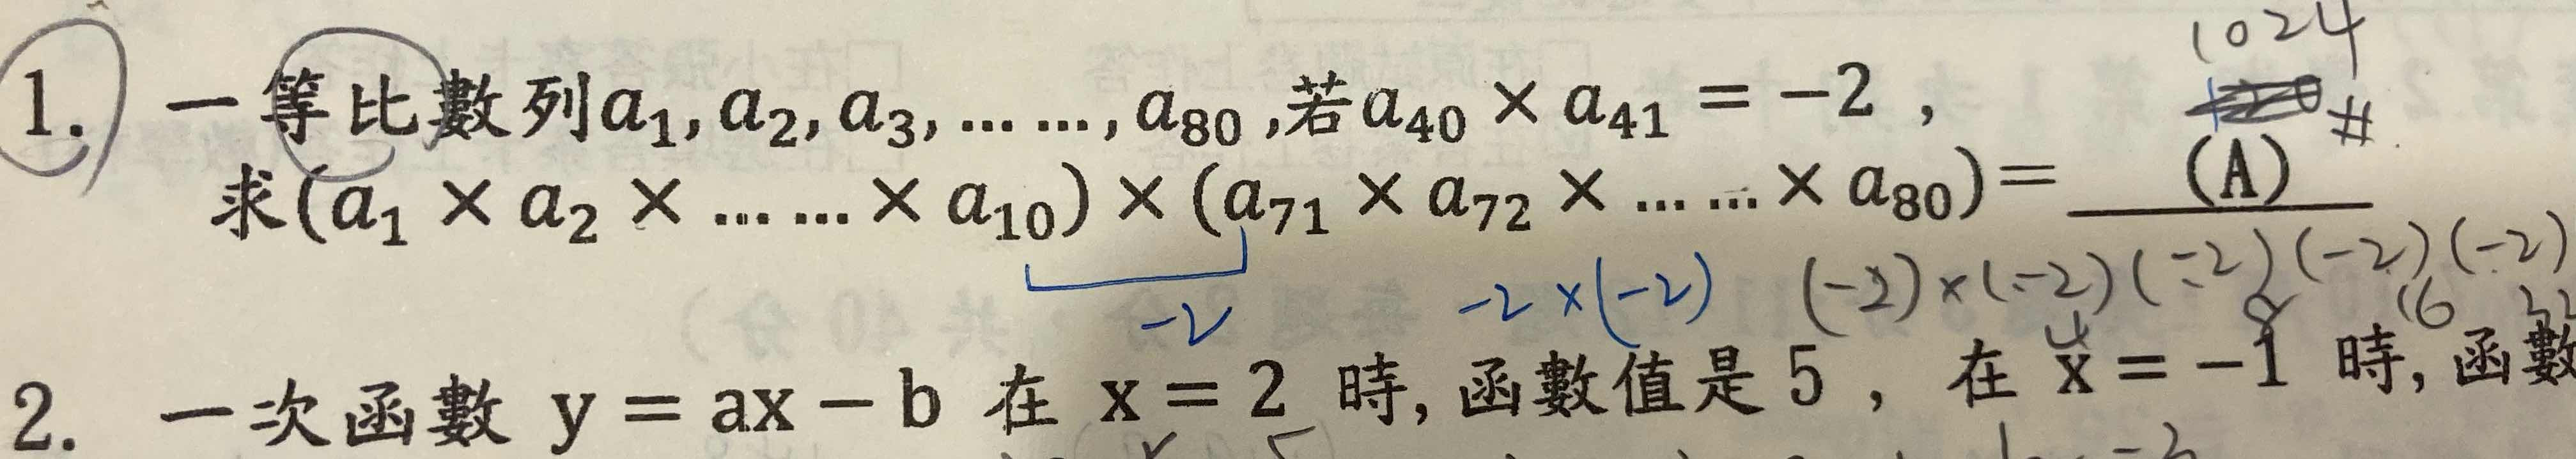 1024
1. 一等比數列a₁, a₂, a₃, ... ..., a₈₀ ,若a₄₀ × a₄₁ = −2 ,
#
求(a₁ × a₂ × ... ... × a₁₀) × (a₇₁ × a₇₂ × ... ... × a₈₀) = (A)
-2 -2×(-2) (-2)×(-2)(-2)(-2)(-2)
4 8 16 32
2. 一次函數 y = ax − b 在 x = 2 時, 函數值是 5 , 在 x = −1 時, 函數